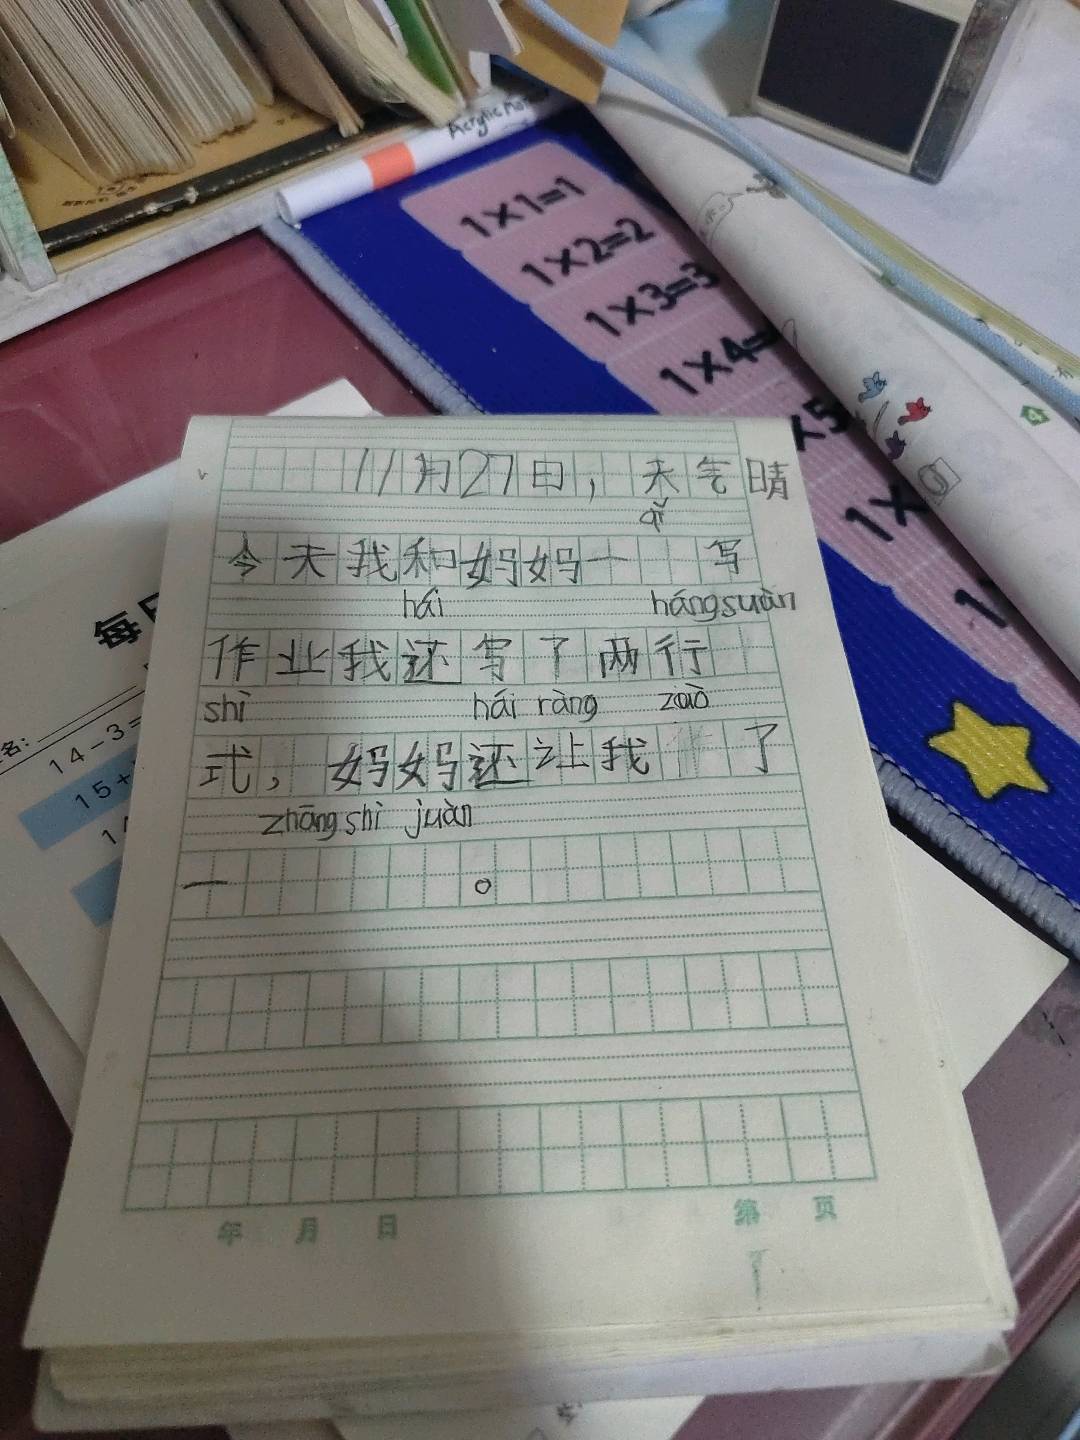 Acrylic
1×1=1
1×2=2
1×3=3
1×4=
×5
1×
1
4
11月27日，天气晴
qǐ
今天我和妈妈一 写
hái hángsuàn
作业我还写了两行
shì hái ràng zuò
式，妈妈还让我 了
zhāng shì juàn
一 。
年 月 日
第 页
每日
名:
14-3=
15+
14